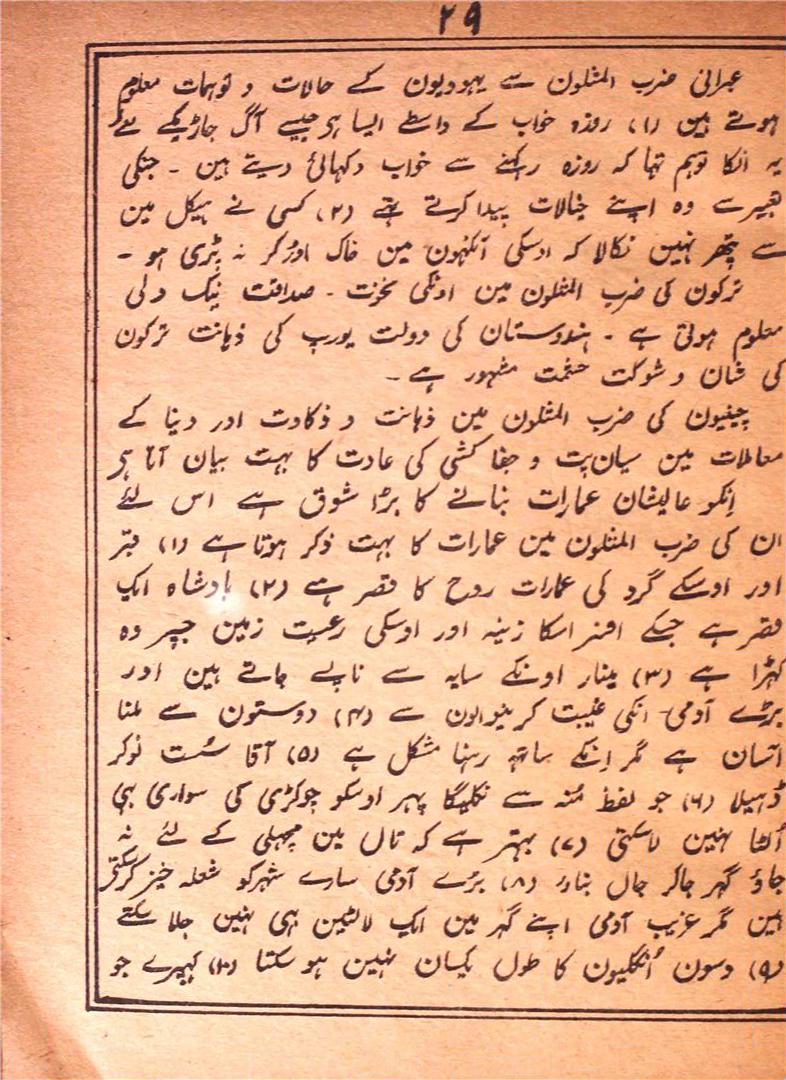 ۲۹
عبرانی ضرب المثلون سے یہودیون کے حالات و توہمات معلوم
ہوتے ہین (۱) روزہ خواب کے واسطے ایسا ہی جیسے آگ جاڑیکے لئے
یہ انکا توہم تہا کہ روزہ رکہنے سے خواب دکہائی دیتے ہین ۔ جنکی
تعبیر سے وہ اپنے خیالات پیدا کرتے تھے (۲) کسی نے ہیکل مین
سے پتھر نہین نکالا کہ اوسکی آنکہون مین خاک اوڑکر نہ پڑی ہو ۔
ترکون کی ضرب المثلون مین اونکی نخوت ۔ صداقت نیک دلی
معلوم ہوتی ہے ۔ ہندوستان کی دولت یورپ کی ذہانت ترکون
کی شان و شوکت حشمت مشہور ہے ۔
چینیون کی ضرب المثلون مین ذہانت و ذکاوت اور دنیا کے
معاملات مین سیان پت و جفا کشی کی عادت کا بہت بیان آتا ہی
اِنکو عالیشان عمارات بنانے کا بڑا شوق ہے اس لئے
ان کی ضرب المثلون مین عمارات کا بہت ذکر ہوتا ہے (۱) قبر
اور اوسکے گرد کی عمارات روح کا قصر ہے (۲) بادشاہ ایک
قصر ہے جسکے افسر اسکا زینہ اور اوسکی رعیت زمین جسپر وہ
کہڑا ہے (۳) مینار اونکے سایہ سے ناپے جاتے ہین اور
بڑے آدمی انکی غیبت کرنیوالون سے (۴) دوستون سے ملنا
آسان ہے مگر اِنکے ساتہ رہنا مشکل ہے (۵) آقا سُست نوکر
ڈہیلا (۶) جو لفظ مُنہ سے نکلیگا پہر اوسکو چوکڑی کی سواری بہی
اُلٹا نہین لاسکتی (۷) بہتر ہے کہ تال مین مچہلی کے لئے نہ
جاؤ گہر جاکر جال بناؤ (۸) بڑے آدمی سارے شہرکو شعلہ خیز کرسکتے
ہین مگر غریب آدمی اپنے گہر مین ایک لالٹین بہی نہین جلا سکتے
(۹) دسون اُنگلیون کا طول یکسان نہین ہو سکتا (۱۰) کپڑے جو